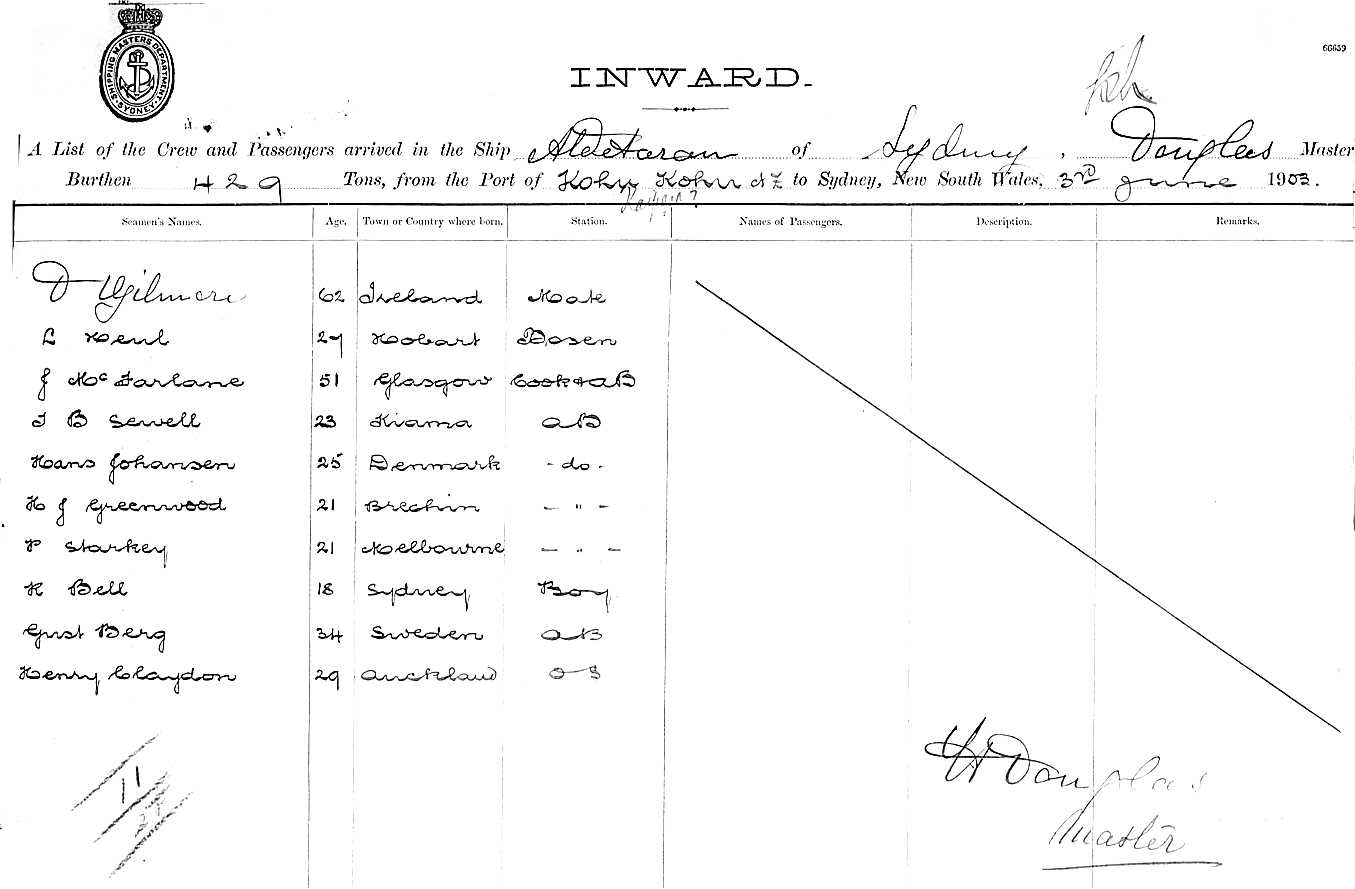 SHIPPING MASTERS DEPARTMENT
SYDNEY
66659
INWARD.
A List of the Crew and Passengers arrived in the Ship Aldebaran of Sydney, Douglas Master
Burthen 429 Tons, from the Port of Kohu Kohu NZ to Sydney, New South Wales, 3rd June 1903.
Seamen's Names. Age. Town or Country where born. Station. Names of Passengers. Description. Remarks.
D Gilmore 62 Ireland Mate
L 29 Hobart Bosen
J McFarlane 51 Glasgow Cook & AB
T B Sewell 23 Kiama AB
Hans Johansen 25 Denmark - do -
H J Greenwood 21 Brechin - " -
P Starkey 21 Melbourne - " -
R Bell 18 Sydney Boy
Gust Berg 34 Sweden AB
Henry Claydon 29 Auckland OS
11
Douglas
Master